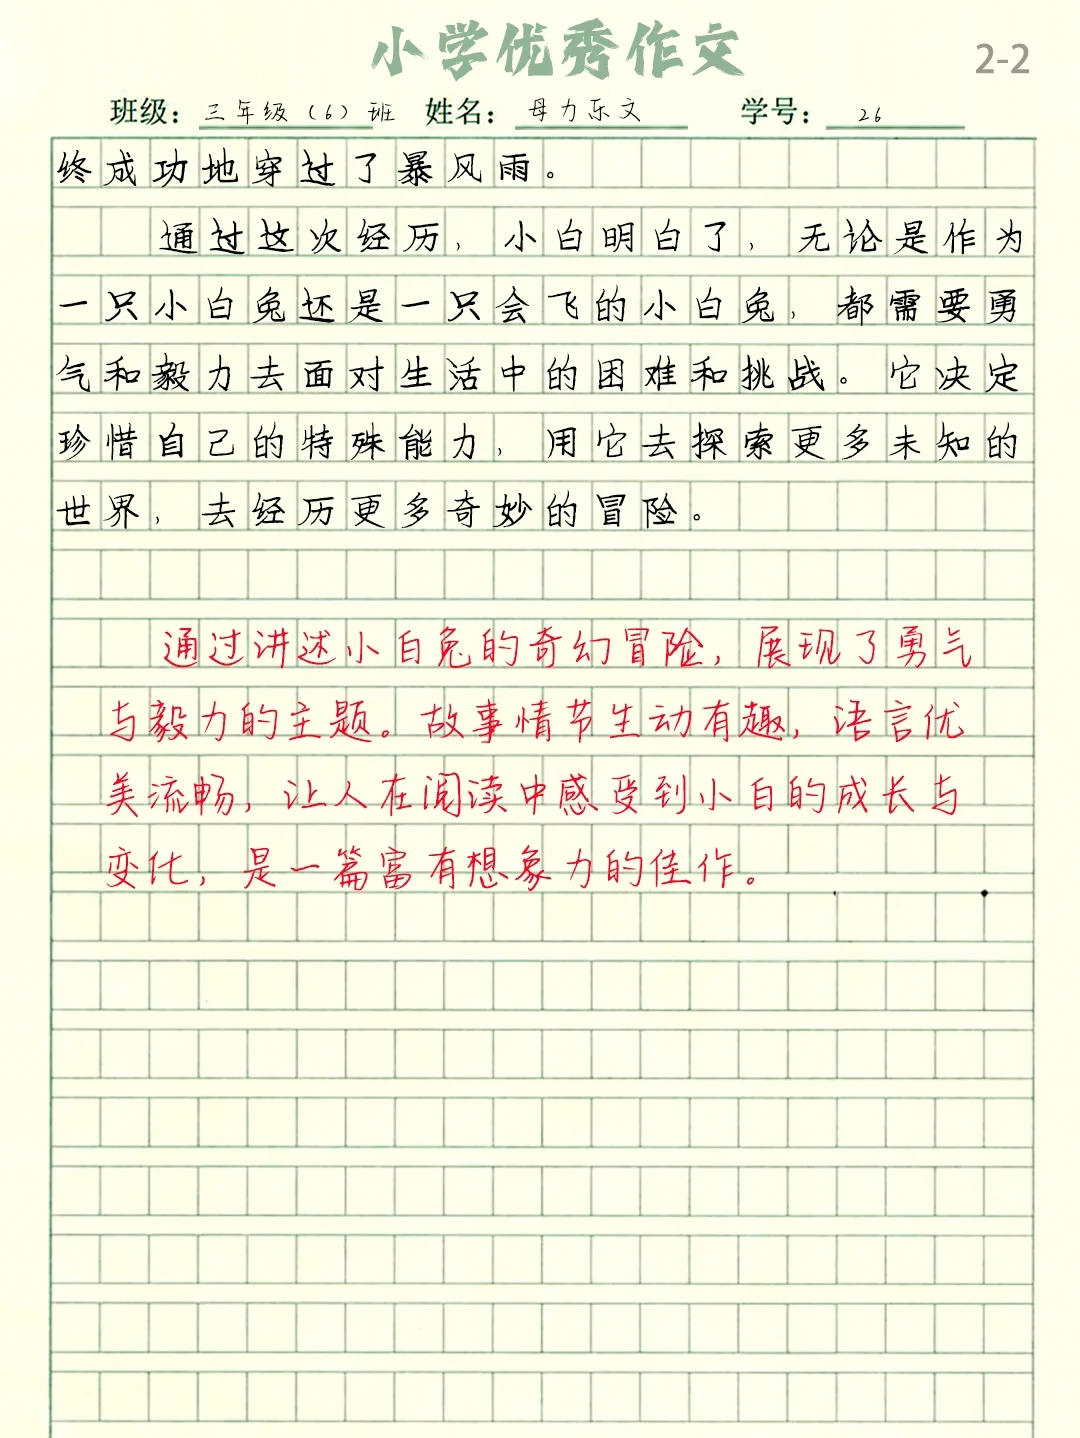 小学优秀作文
2-2
班级：三年级（6）班 姓名：母力乐文 学号：26
终成功地穿过了暴风雨。
通过这次经历，小白明白了，无论是作为
一只小白兔还是一只会飞的小白兔，都需要勇
气和毅力去面对生活中的困难和挑战。它决定
珍惜自己的特殊能力，用它去探索更多未知的
世界，去经历更多奇妙的冒险。
通过讲述小白兔的奇幻冒险，展现了勇气
与毅力的主题。故事情节生动有趣，语言优
美流畅，让人在阅读中感受到小白的成长与
变化，是一篇富有想象力的佳作。